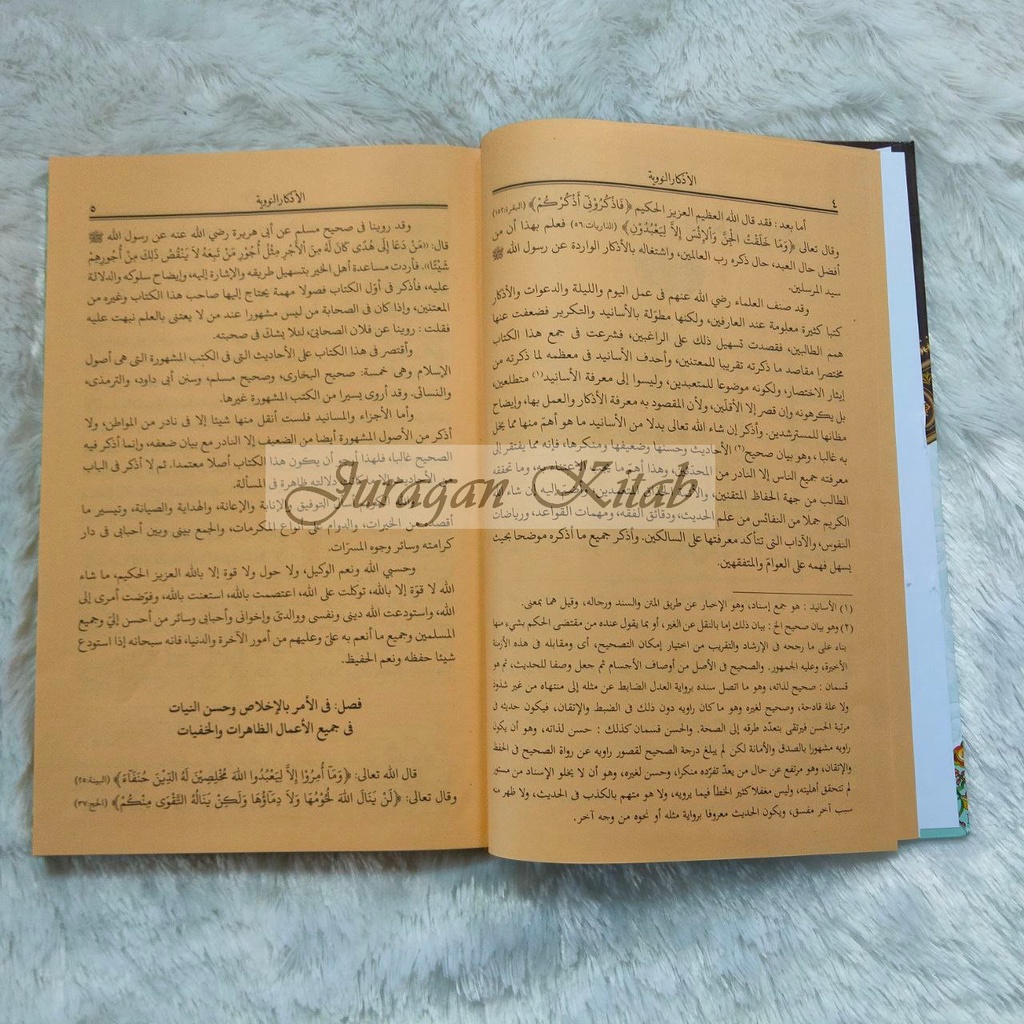 الأذكار النووية
٤
أما بعد : فقد قال الله العظيم العزيز الحكيم ﴿فَاذْكُرُوْنِيْ أَذْكُرْكُمْ﴾ (البقرة:١٥٢)
وقال تعالى ﴿وَمَا خَلَقْتُ الْجِنَّ وَالْإِنْسَ إِلاَّ لِيَعْبُدُوْنِ﴾ (الذاريات:٥٦) فعلم بهذا أن من
أفضل حال العبد، حال ذكره رب العالمين، واشتغاله بالأذكار الواردة عن رسول الله ﷺ
سيد المرسلين.
وقد صنف العلماء رضي الله عنهم في عمل اليوم والليلة والدعوات والأذكار
كتبا كثيرة معلومة عند العارفين، ولكنها مطوّلة بالأسانيد والتكرير فضعفت عنها
همم الطالبين، فقصدت تسهيل ذلك على الراغبين، فشرعت في جمع هذا الكتاب
مختصرا مقاصد ما ذكرته تقريبا للمعتنين، وأحذف الأسانيد في معظمه لما ذكرته من
إيثار الاختصار، ولكونه موضوعا للمتعبدين، وليسوا إلى معرفة الأسانيد(١) متطلعين،
بل يكرهونه وإن قصر إلا الأقلّين، ولأن المقصود به معرفة الأذكار والعمل بها، وإيضاح
مظانها للمسترشدين. وأذكر إن شاء الله تعالى بدلا من الأسانيد ما هو أهمّ منها مما يخل
به غالبا ، وهو بيان صحيح(٢) الأحاديث وحسنها وضعيفها ومنكرها، فإنه مما يفتقر إلى
معرفته جميع الناس إلا النادر من المحدثين، وهذا أهمّ ما يجب الاعتناء به، وما تحققه
الطالب من جهة الحفاظ المتقنين، والأئمة
الكريم جملا من النفائس من علم الحديث، ودقائق الفقه، ومهمات القواعد، ورياضات
النفوس، والآداب التي تتأكد معرفتها على السالكين. وأذكر جميع ما أذكره موضحا بحيث
يسهل فهمه على العوامّ والمتفقهين.
(١) الأسانيد : هو جمع إسناد، وهو الإخبار عن طريق المتن والسند ورجاله، وقيل هما بمعنى.
(٢) وهو بيان صحيح الخ : بيان ذلك إما بالنقل عن الغير، أو بما يقول عنده من مقتضى الحكم بشيء منها
بناء على ما رجحه في الإرشاد والتقريب من اختيار إمكان التصحيح، أى ومقابله في هذه الأزمنة
الأخيرة، وعليه الجمهور. والصحيح في الأصل من أوصاف الأجسام ثم جعل وصفا للحديث، ثم هو
قسمان : صحيح لذاته، وهو ما اتصل سنده برواية العدل الضابط عن مثله إلى منتهاه من غير شذوذ
ولا علة قادحة، وصحيح لغيره وهو ما كان راويه دون ذلك في الضبط والإتقان، فيكون حديثه في
مرتبة الحسن فيرتقى بتعدّد طرقه إلى الصحة. والحسن قسمان كذلك : حسن لذاته، وهو أن يكون
راويه مشهورا بالصدق والأمانة لكن لم يبلغ درجة الصحيح لقصور راويه عن رواة الصحيح في الحفظ
والإتقان، وهو مرتفع عن حال من يعدّ تفرّده منكرا، وحسن لغيره، وهو أن لا يخلو الإسناد من مستور
لم تتحقق أهليته، وليس مغفلا كثير الخطأ فيما يرويه، ولا هو متهم بالكذب في الحديث، ولا ظهر منه
سبب آخر مفسق، ويكون الحديث معروفا برواية مثله أو نحوه من وجه آخر.
الأذكار النووية
٥
وقد روينا في صحيح مسلم عن أبي هريرة رضي الله عنه عن رسول الله ﷺ
قال: ((مَنْ دَعَا إِلَى هُدًى كَانَ لَهُ مِنَ الْأَجْرِ مِثْلُ أُجُوْرِ مَنْ تَبِعَهُ لاَ يَنْقُصُ ذَلِكَ مِنْ أُجُوْرِهِمْ
شَيْئًا)). فأردت مساعدة أهل الخير بتسهيل طريقه والإشارة إليه، وإيضاح سلوكه والدلالة
عليه، فأذكر في أوّل الكتاب فصولا مهمة يحتاج إليها صاحب هذا الكتاب وغيره من
المعتنين، وإذا كان في الصحابة من ليس مشهورا عند من لا يعتنى بالعلم نبهت عليه
فقلت : روينا عن فلان الصحابىّ، لئلا يشكّ في صحبته.
وأقتصر في هذا الكتاب على الأحاديث التى فى الكتب المشهورة التى هى أصول
الإسلام وهى خمسة: صحيح البخارى، وصحيح مسلم، وسنن أبى داود، والترمذى،
والنسائى. وقد أروى يسيرا من الكتب المشهورة غيرها.
وأما الأجزاء والمسانيد فلست أنقل منها شيئا إلا فى نادر من المواطن، ولا
أذكر من الأصول المشهورة أيضا من الضعيف إلا النادر مع بيان ضعفه، وإنما أذكر فيه
الصحيح غالبا، فلهذا أرجو أن يكون هذا الكتاب أصلا معتمدا. ثم لا أذكر فى الباب
من الأحاديث إلا ما كانت دلالته ظاهرة فى المسألة.
التوفيق والإنابة والإعانة، والهداية والصيانة، وتيسير ما
أقصده من الخيرات، والدوام على أنواع المكرمات، والجمع بيني وبين أحبابى فى دار
كرامته وسائر وجوه المسرّات.
وحسبي الله ونعم الوكيل، ولا حول ولا قوة إلا بالله العزيز الحكيم، ما شاء
الله لا قوّة إلا بالله، توكلت على الله، اعتصمت بالله، استعنت بالله، وفوّضت أمرى إلى
الله، واستودعت الله دينى ونفسى ووالدىّ وإخوانى وأحبابى وسائر من أحسن إلىّ وجميع
المسلمين وجميع ما أنعم به علىّ وعليهم من أمور الآخرة والدنيا، فانه سبحانه إذا استودع
شيئا حفظه ونعم الحفيظ.
فصل: فى الأمر بالإخلاص وحسن النيات
فى جميع الأعمال الظاهرات والخفيات
قال الله تعالى: ﴿وَمَا أُمِرُوْا إِلاَّ لِيَعْبُدُوا اللهَ مُخْلِصِيْنَ لَهُ الدِّيْنَ حُنَفَآءَ﴾ (البينة:٢٥)
وقال تعالى: ﴿لَنْ يَنَالَ اللهَ لُحُوْمُهَا وَلاَ دِمَآؤُهَا وَلَكِنْ يَنَالُهُ التَّقْوَى مِنْكُمْ﴾ (الحج:٣٧)
Juragan Kitab